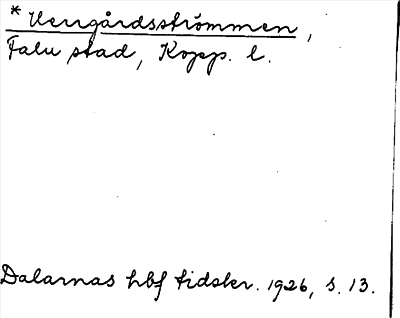 * Herrgårdsströmmen,
Falu stad, Kopp. l.
Dalarnas hbf tidskr. 1926, s. 13.